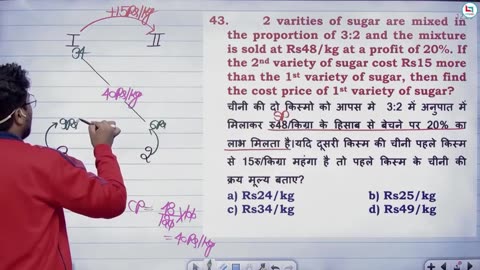 43. 2 varities of sugar are mixed in
the proportion of 3:2 and the mixture
is sold at Rs48/kg at a profit of 20%. If
the 2nd variety of sugar cost Rs15 more
than the 1st variety of sugar, then find
the cost price of 1st variety of sugar?
चीनी की दो किस्मो को आपस मे 3:2 में अनुपात में
मिलाकर रु48/किग्रा के हिसाब से बेचने पर 20% का
लाभ मिलता है।यदि दूसरी किस्म की चीनी पहले किस्म
से 15रु/किग्रा महंगा है तो पहले किस्म के चीनी की
क्रय मूल्य बताए?
a) Rs24/kg b) Rs25/kg
c) Rs34/kg d) Rs49/kg
+15Rs/kg
I II
34
40Rs/kg
9Rs 6Rs
2
SP
CP = 48/120 × 100
= 40Rs/kg